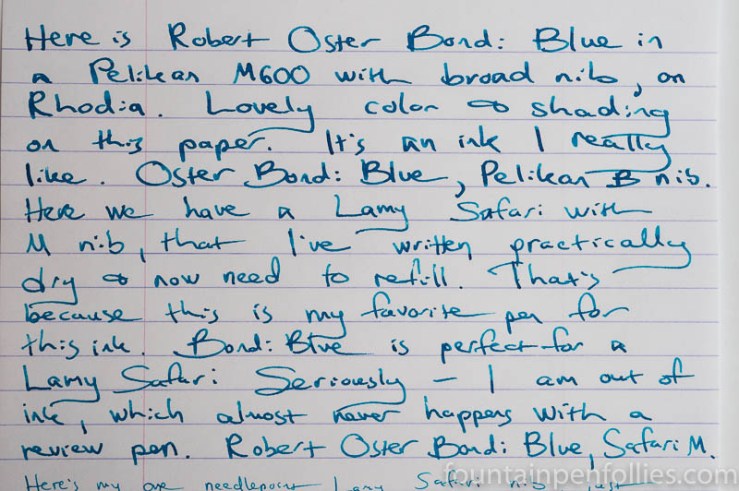 Here is Robert Oster Bondi Blue in
a Pelikan M600 with broad nib, on
Rhodia. Lovely color & shading
on this paper. It's an ink I really
like. Oster Bondi Blue, Pelikan B nib.
Here we have a Lamy Safari with
M nib, that I've written practically
dry & now need to refill. That's
because this is my favorite pen for
this ink. Bondi Blue is perfect for a
Lamy Safari. Seriously — I am out of
ink, which almost never happens with a
review pen. Robert Oster Bondi Blue, Safari M.
Here's my one needlepoint Lamy Safari nib, just
fountainpenfollies.com